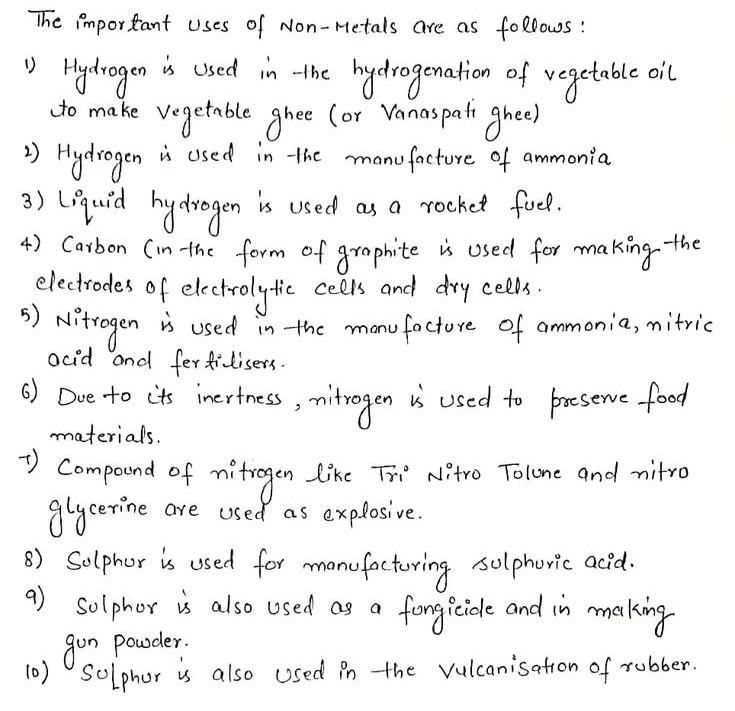 The important uses of Non-Metals are as follows :
1) Hydrogen is used in the hydrogenation of vegetable oil
to make vegetable ghee (or Vanaspati ghee)
2) Hydrogen is used in the manufacture of ammonia
3) Liquid hydrogen is used as a rocket fuel.
4) Carbon (in the form of graphite is used for making the
electrodes of electrolytic cells and dry cells.
5) Nitrogen is used in the manufacture of ammonia, nitric
acid and fertilisers.
6) Due to its inertness, nitrogen is used to preserve food
materials.
7) Compound of nitrogen like Tri Nitro Tolune and nitro
glycerine are used as explosive.
8) Sulphur is used for manufacturing sulphuric acid.
9) Sulphur is also used as a fungicide and in making
gun powder.
10) Sulphur is also used in the vulcanisation of rubber.